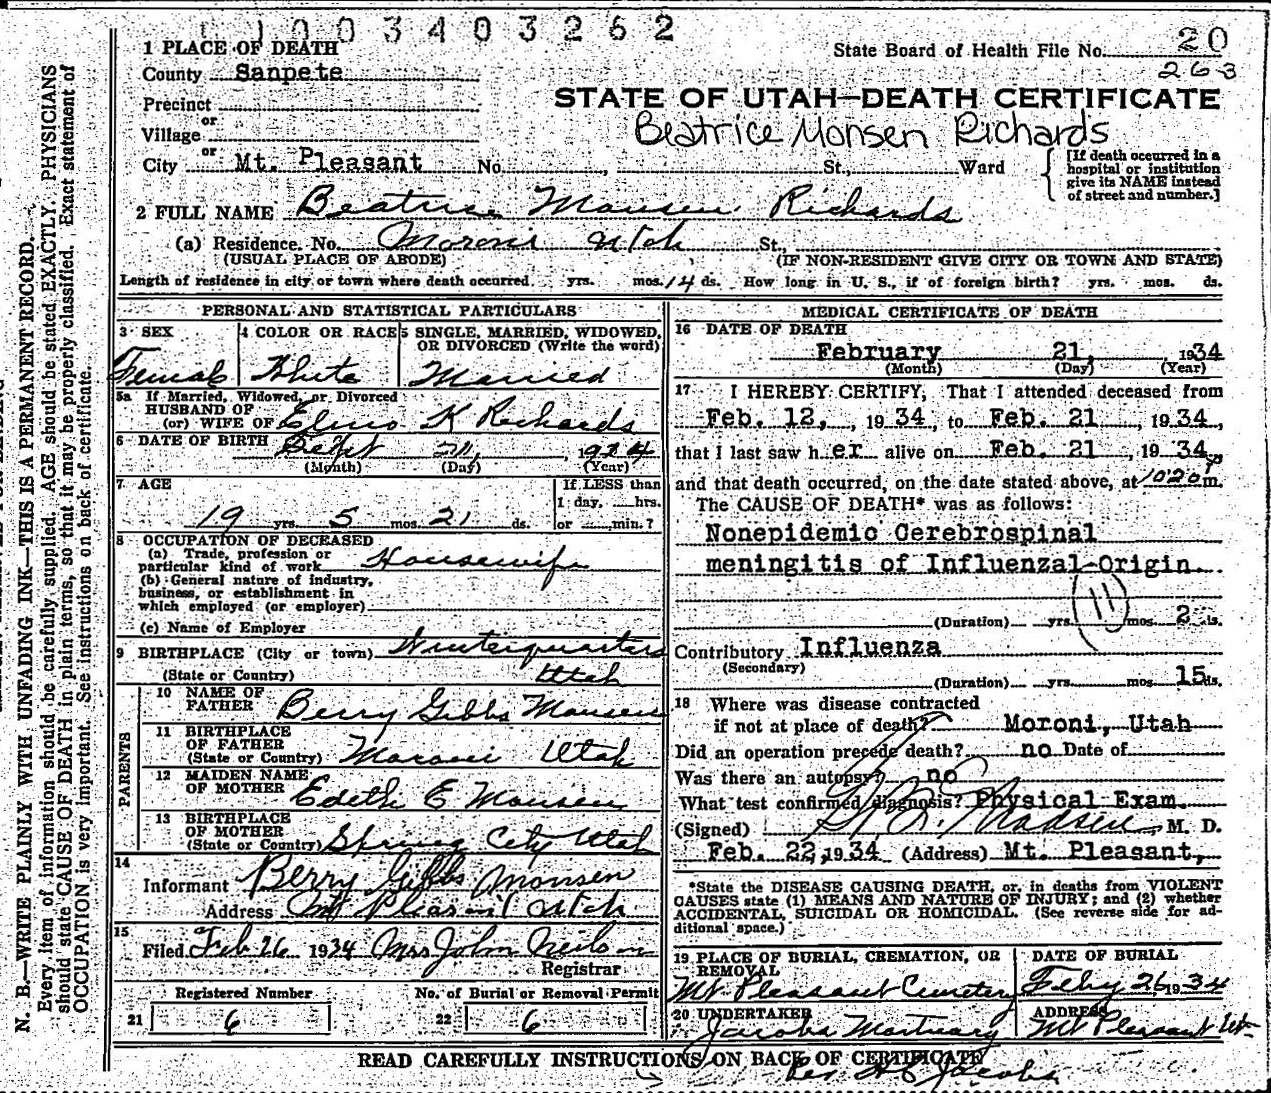 1003403262
State Board of Health File No. 20
263
1 PLACE OF DEATH
County Sanpete
Precinct
or
Village
or
City Mt. Pleasant No. , St., Ward
STATE OF UTAH—DEATH CERTIFICATE
Beatrice Monsen Richards
[If death occurred in a
hospital or institution
give its NAME instead
of street and number.]
2 FULL NAME Beatrice Monsen Richards
(a) Residence. No. Moroni Utah St.,
(USUAL PLACE OF ABODE) (IF NON-RESIDENT GIVE CITY OR TOWN AND STATE)
Length of residence in city or town where death occurred yrs. mos. 14 ds. How long in U. S., if of foreign birth? yrs. mos. ds.
PERSONAL AND STATISTICAL PARTICULARS
3 SEX 4 COLOR OR RACE 5 SINGLE, MARRIED, WIDOWED,
OR DIVORCED (Write the word)
Female White Married
5a If Married, Widowed, or Divorced
HUSBAND OF
(or) WIFE OF Elmo K Richards
6 DATE OF BIRTH Sept , 1914
(Month) (Day) (Year)
7 AGE If LESS than
1 day, hrs.
19 yrs. 5 mos. 21 ds. or min.?
8 OCCUPATION OF DECEASED
(a) Trade, profession or
particular kind of work Housewife
(b) General nature of industry,
business, or establishment in
which employed (or employer)
(c) Name of Employer
9 BIRTHPLACE (City or town) Winterquarters
(State or Country) Utah
PARENTS
10 NAME OF
FATHER Berry Gibbs Monsen
11 BIRTHPLACE
OF FATHER
(State or Country) Moroni Utah
12 MAIDEN NAME
OF MOTHER Edeth E Monsen
13 BIRTHPLACE
OF MOTHER
(State or Country) Spring City Utah
14
Informant Berry Gibbs Monsen
Address Mt Pleasant Utah
15
Filed Feb 26 1934 Mrs John Neilson
Registrar
Registered Number No. of Burial or Removal Permit
21 6 22 6
MEDICAL CERTIFICATE OF DEATH
16 DATE OF DEATH
February 21, , 1934
(Month) (Day) (Year)
17 I HEREBY CERTIFY, That I attended deceased from
Feb. 12, , 1934, to Feb. 21 , 1934,
that I last saw h er alive on Feb. 21 , 1934,
and that death occurred, on the date stated above, at 10:20 P m.
The CAUSE OF DEATH* was as follows:
Nonepidemic Cerebrospinal
meningitis of Influenzal Origin.
11
(Duration) yrs. mos. 2 ds.
Contributory Influenza
(Secondary)
(Duration) yrs. mos. 15 ds.
18 Where was disease contracted
if not at place of death? Moroni, Utah
Did an operation precede death? no Date of
Was there an autopsy? no
What test confirmed diagnosis? Physical Exam.
(Signed) Madsen M. D.
Feb. 22, 1934 (Address) Mt. Pleasant,
*State the DISEASE CAUSING DEATH, or, in deaths from VIOLENT
CAUSES state (1) MEANS AND NATURE OF INJURY; and (2) whether
ACCIDENTAL, SUICIDAL OR HOMICIDAL. (See reverse side for ad-
ditional space.)
19 PLACE OF BURIAL, CREMATION, OR
REMOVAL
Mt. Pleasant Cemetery
DATE OF BURIAL
Feby 26, 1934
20 UNDERTAKER
Jacobs Mortuary
ADDRESS
Mt Pleasant Ut
READ CAREFULLY INSTRUCTIONS ON BACK OF CERTIFICATE
Per H C Jacobs
N. B.—WRITE PLAINLY WITH UNFADING INK—THIS IS A PERMANENT RECORD.
Every item of information should be carefully supplied. AGE should be stated EXACTLY. PHYSICIANS
should state CAUSE OF DEATH in plain terms, so that it may be properly classified. Exact statement of
OCCUPATION is very important. See instructions on back of certificate.